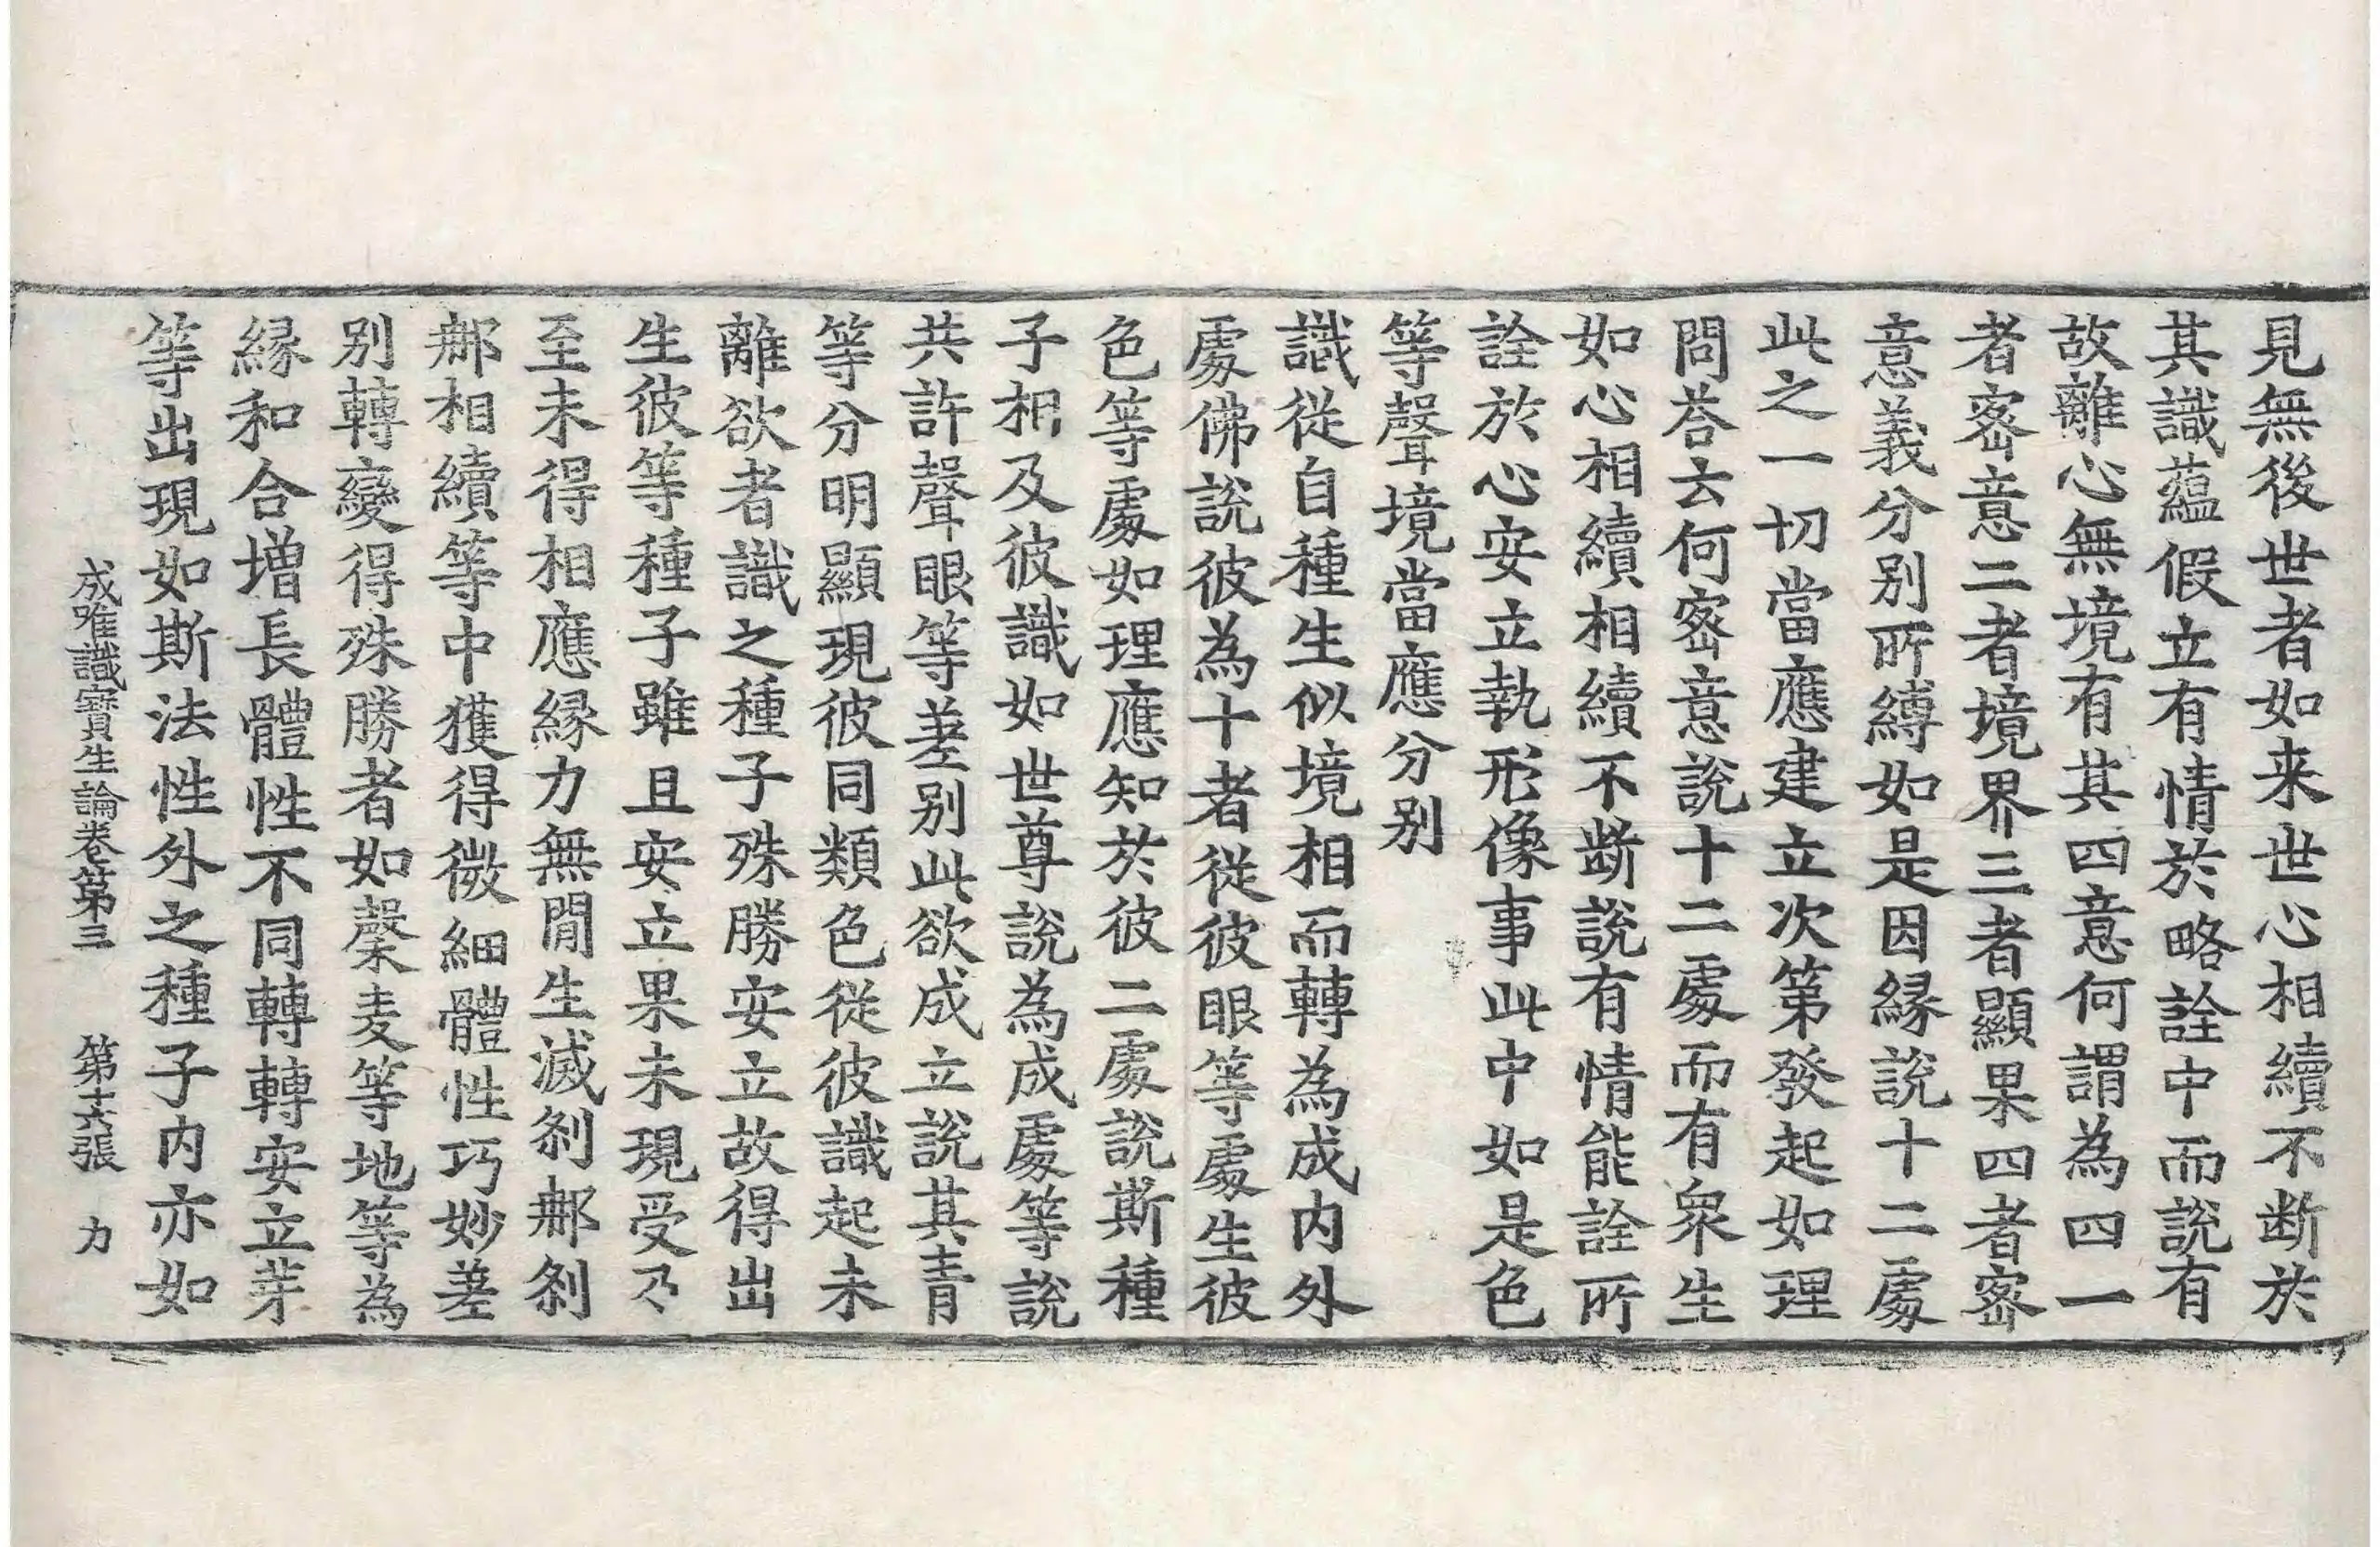 見無後世者如来世心相續不断於
其識蘊假立有情於略詮中而說有
故離心無境有其四意何謂為四一
者宻意二者境界三者顯果四者宻
意義分别所縛如是因緣說十二處
此之一切當應建立次第發起如理
問荅云何宻意說十二處而有衆生
如心相續相續不断說有情能詮所
詮於心安立執形像事此中如是色
等聲境當應分别
識從自種生似境相而轉為成内外
處佛說彼為十者從彼眼等處生彼
色等處如理應知於彼二處說斯種
子相及彼識如世尊說為成處等說
共許聲眼等差别此欲成立說其青
等分明顯現彼同類色從彼識起未
離欲者識之種子殊勝安立故得出
生彼等種子雖且安立果未現受乃
至未得相應緣力無閒生滅剎那剎
那相續等中獲得微細體性巧妙差
别轉變得殊勝者如䅘麦等地等為
緣和合增長體性不同轉轉安立芽
等出現如斯法性外之種子内亦如
成唯識寳生論卷第三　第十六張　力